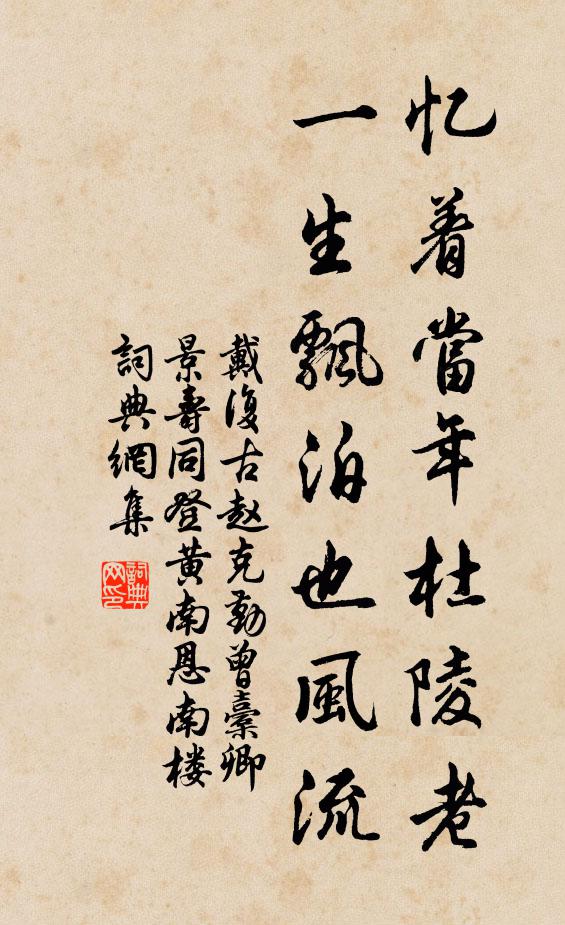 忆着當年杜陵老
一生飄泊也風流
戴復古赵克勤曾橐卿
景壽同登黄南恩南楼
詞典網集
詞典網印